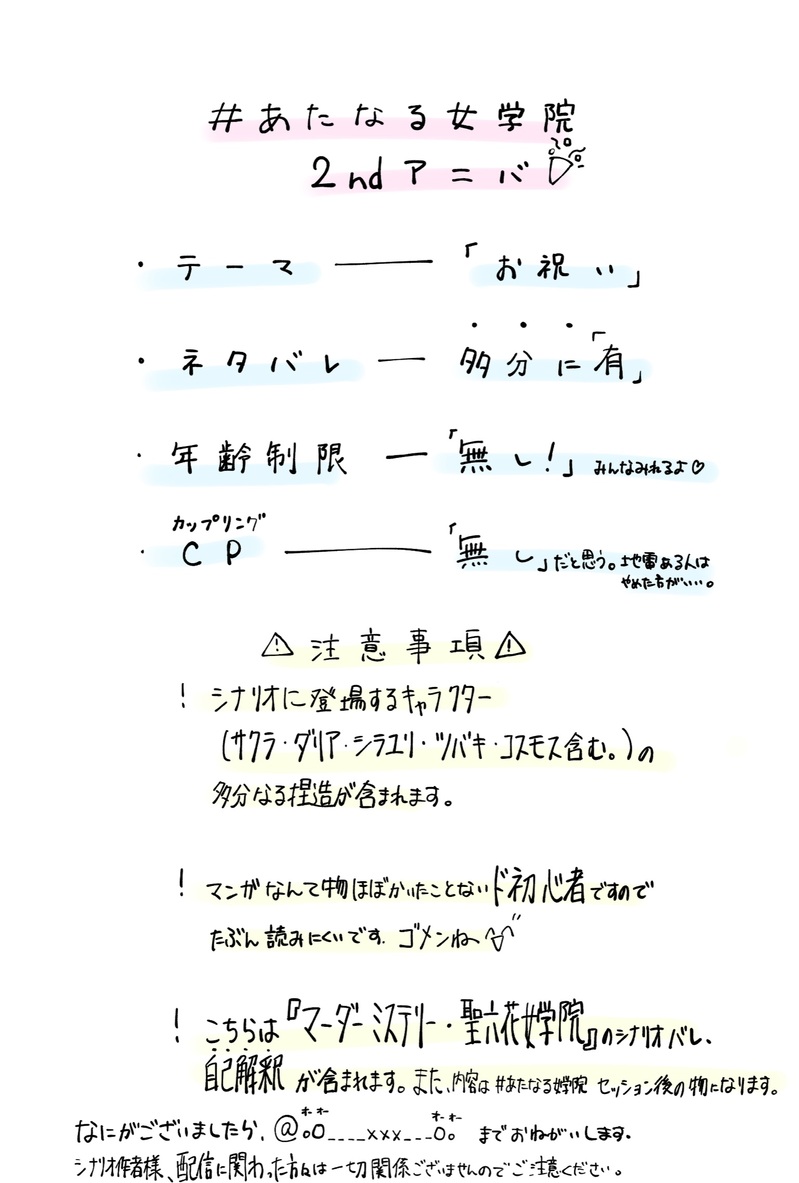 #あたなる女学院
2ndアニバ
・テーマ ― 「お祝い」
・ネタバレ ― 多分に「有」
・年齢制限 ― 「無し!」みんなみれるよ♡
カップリング
・CP ― 「無し」だと思う。地雷ある人は
やめた方がいい。
⚠注意事項⚠
! シナリオに登場するキャラクター
(サクラ・ダリア・シラユリ・ツバキ・コスモス含む。)の
多分なる捏造が含まれます。
! マンガなんて物ほぼかいたことないド初心者ですので
たぶん読みにくいです。ゴメンね
! こちらは『マーダーミステリー・聖六花女学院』のシナリオバレ、
自己解釈が含まれます。また、内容は#あたなる女学院 セッション後の物になります。
オーオー オーオー
なにがございましたら、@oO____xxx___Oo までおねがいします。
シナリオ作者様、配信に関わった方々は一切関係ございませんのでご注意ください。